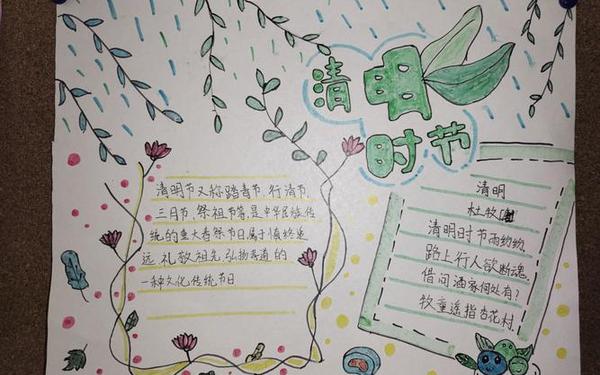 清明
时节
清明节又称踏青节、行清节、
三月节、祭祖节等,是中华民族传
统的重大春祭节日,属于慎终追
远、礼敬祖先、弘扬孝道的
一种文化传统节日
清明
杜牧
清明时节雨纷纷,
路上行人欲断魂。
借问酒家何处有?
牧童遥指杏花村.